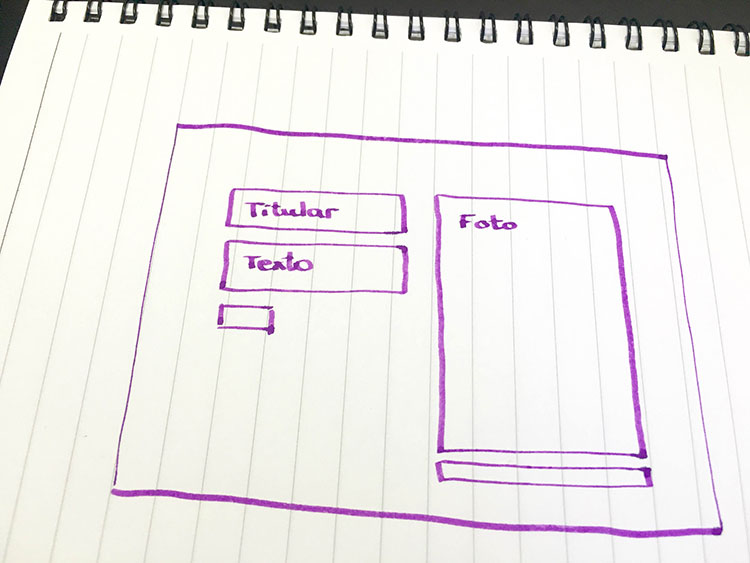 Titular
Texto
Foto